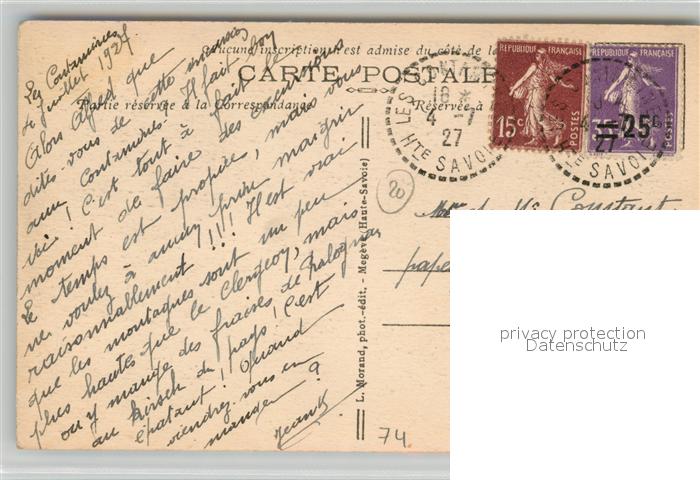 Aucune inscription n'est admise du côté de la
CARTE POSTALE
Partie réservée à la Correspondance
Réservée à
Les Contamines
4 juillet 1927
Alors Alfred que
dites-vous de cette
aux Contamines! Il fait bon
ici! C'est tout à fait le
moment de faire des excursions
Le temps est propice, mais vous
ne voulez à aucun prix maigrir
raisonnablement!!!! Il est vrai
que les montagnes sont un peu
plus hautes que le Clergeon, mais
on y mange des fraises de
au kirsch du pays! C'est
épatant! Quand
viendrez-vous en
manger?
Jean
L. Morand, phot.-édit. - Megève (Haute-Savoie)
REPUBLIQUE FRANÇAISE
15c
POSTES
REPUBLIQUE FRANÇAISE
25c
POSTES
18 *
4 - 7
27
HTE SAVOIE
27
SAVOIE
20
Constant
74
privacy protection
Datenschutz